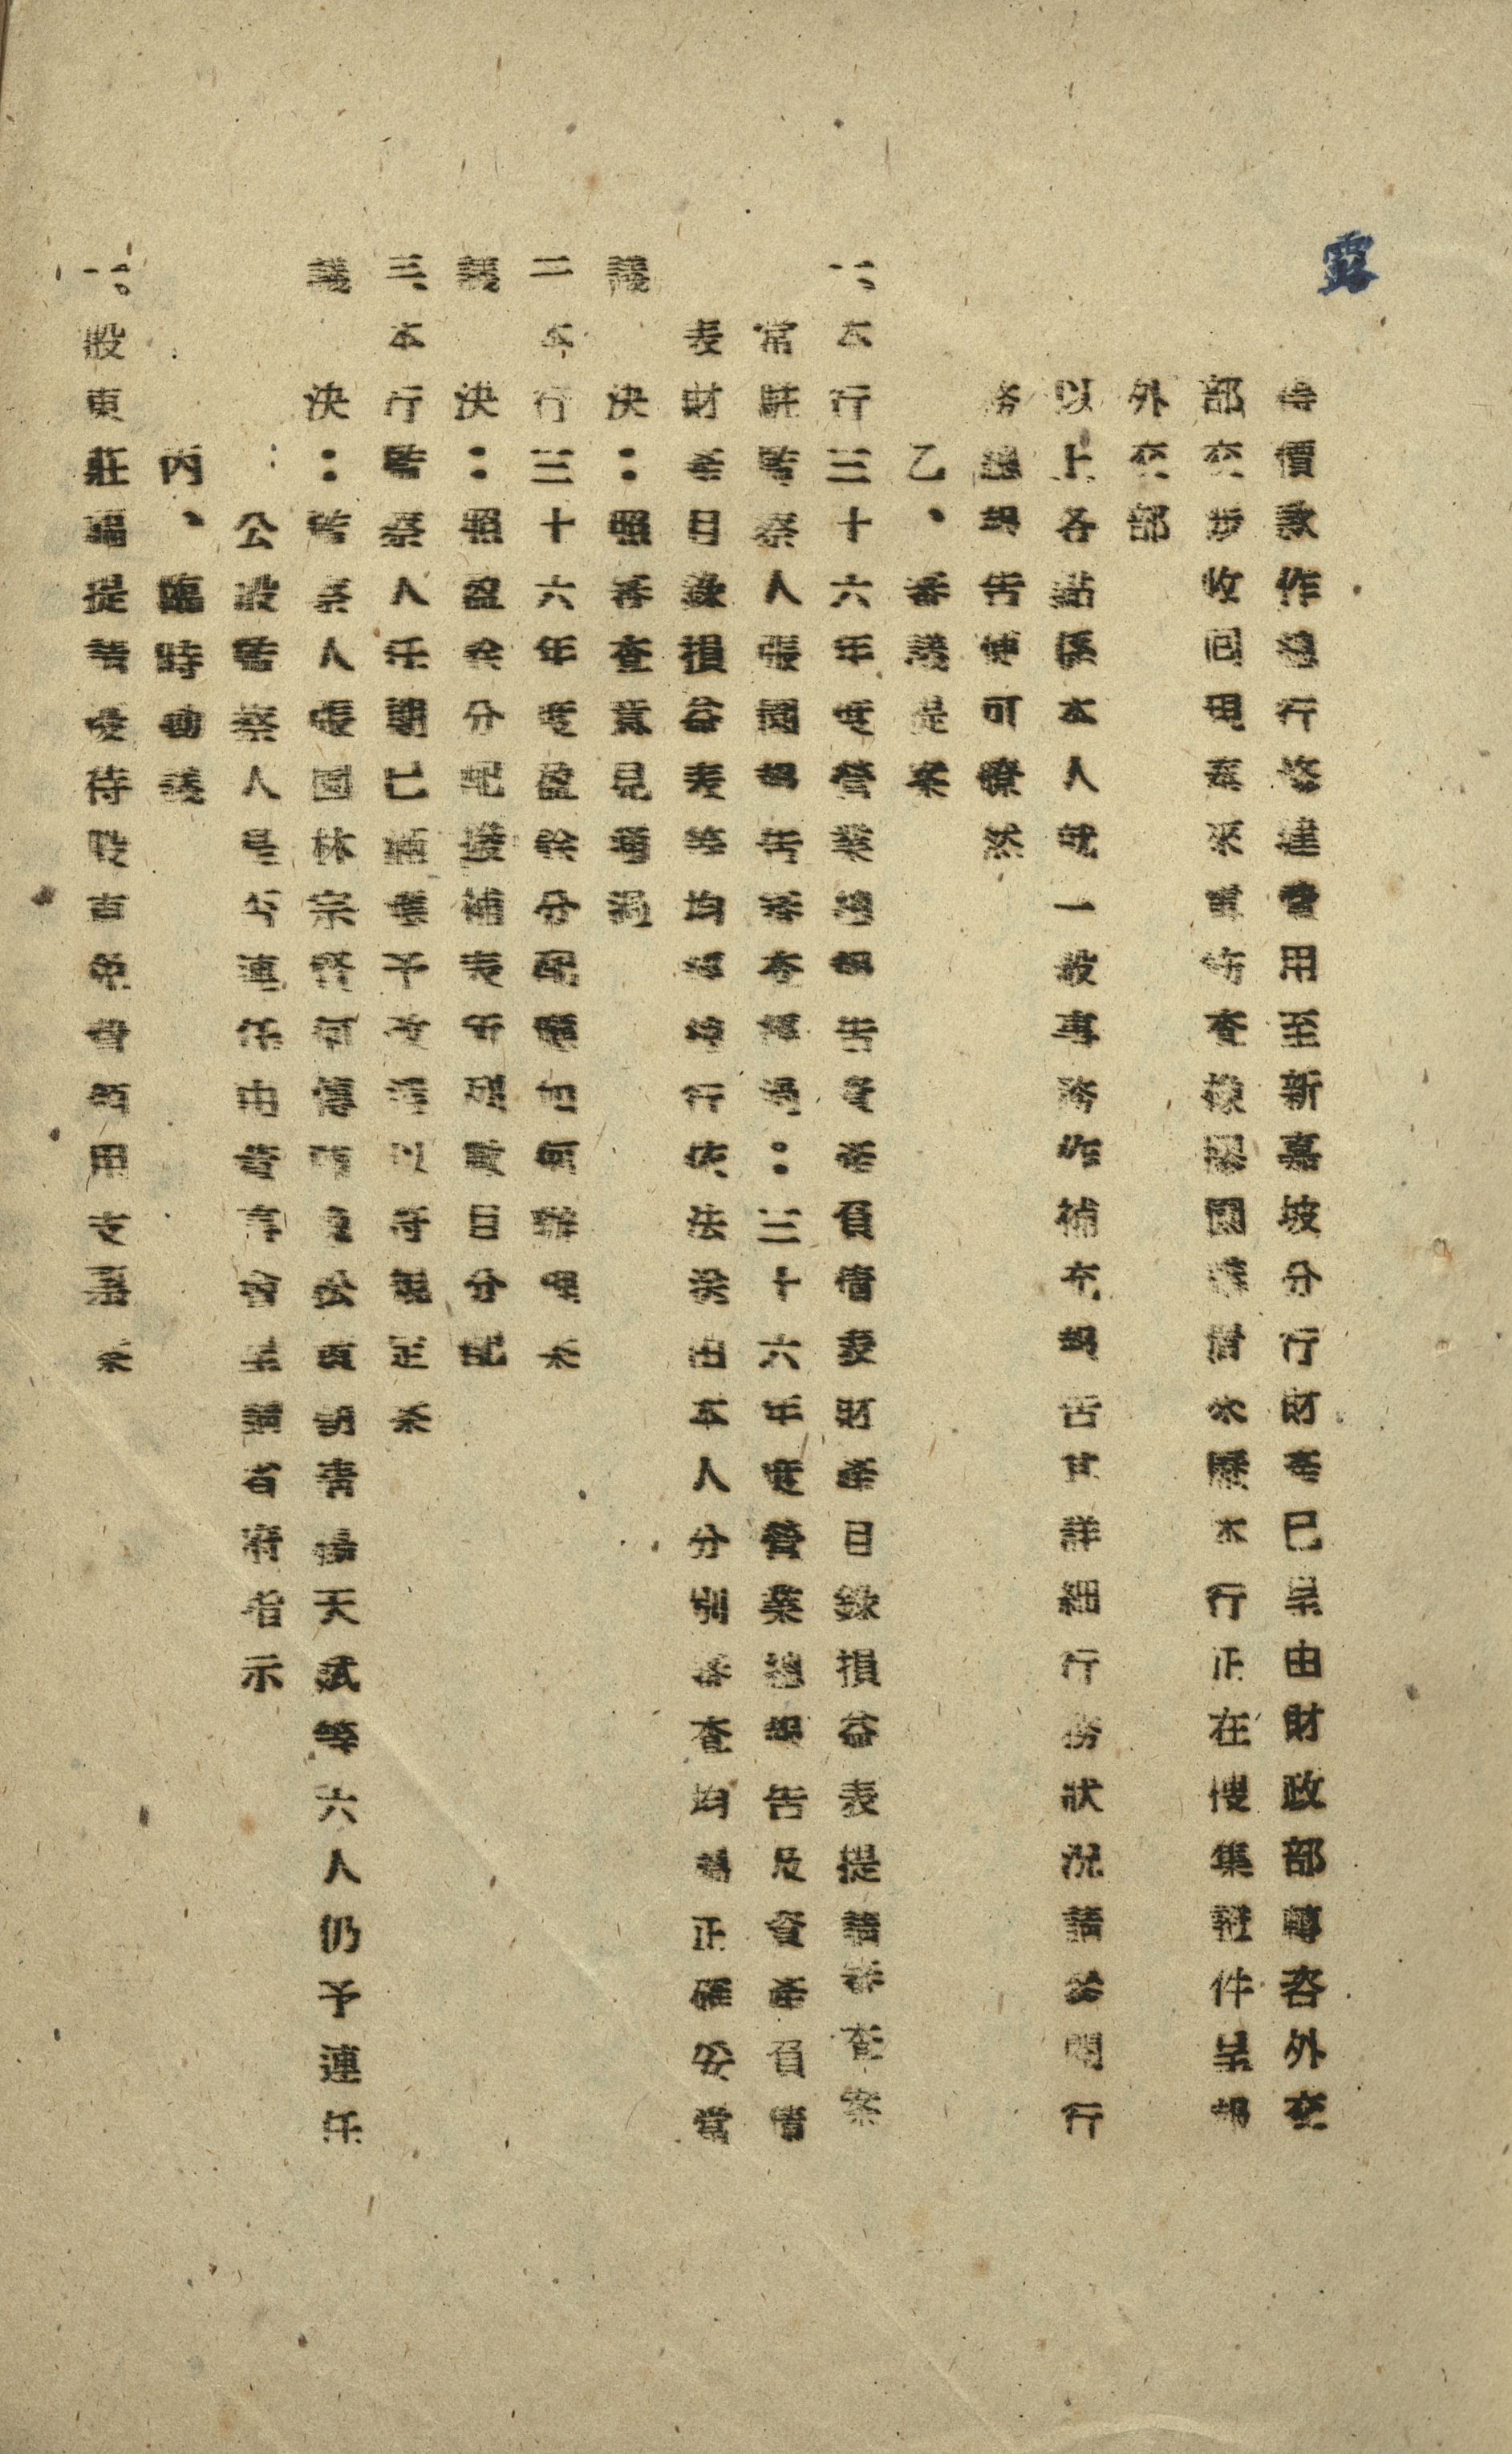 露
價款作總行修建費用至新嘉坡分行財產已呈由財政部轉咨外交
部交涉收回現奉來查橡膠園行正在搜集證件呈報
外交部
以上各點係本人就一般事務作補充報告其詳細行務狀況請參閱行
務總報告便可瞭然
乙、審議提案
一、本行三十六年度營業總報告資產負債表財產目錄損益表提請審查案
常駐監察人張國報告案過：三十六年度營業總報告及資產負債
表財產目錄損益表等均行依法決由本人分別審查均屬正確妥當
議決：照審查意見通過
二、本行三十六年度盈餘分配應如何辦理案
議決：照盈餘分配撥補表所列數目分配
三、本行監察人任期已屆予改選以符規定案
議決：監察人張國林宗賢何胡青楊天武等六人仍予連任
：公股監察人是否連任由董事會呈請省府指示
丙、臨時動議
一、股東莊提請優待股東免費領用支票案